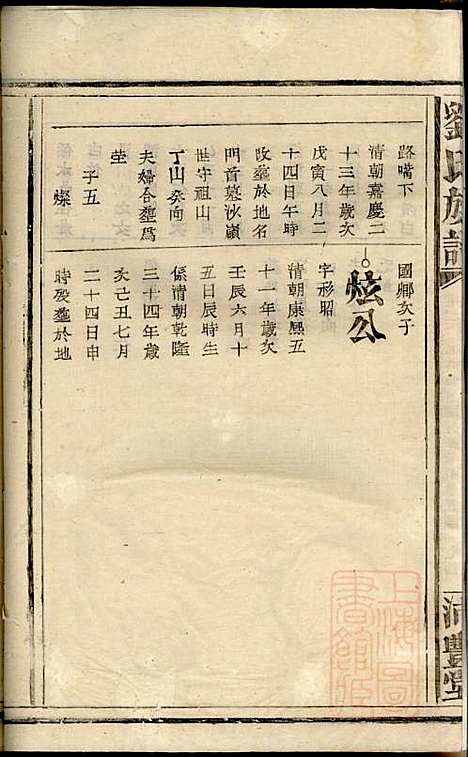 劉氏族譜
沛豐堂
路嘴下
清朝嘉慶二
十三年歲次
戊寅八月二
十四日午時
改塟於地名
門首墓沙嶺
世守祖山
丁山癸向
夫婦合塟爲
塋
子五
燦
國卿次子
炫公
字彤昭
清朝康熙五
十一年歲次
壬辰六月十
五日辰時生
係清朝乾隆
三十四年歲
次己丑七月
二十四日申
時歿塟於地
上海圖
書館